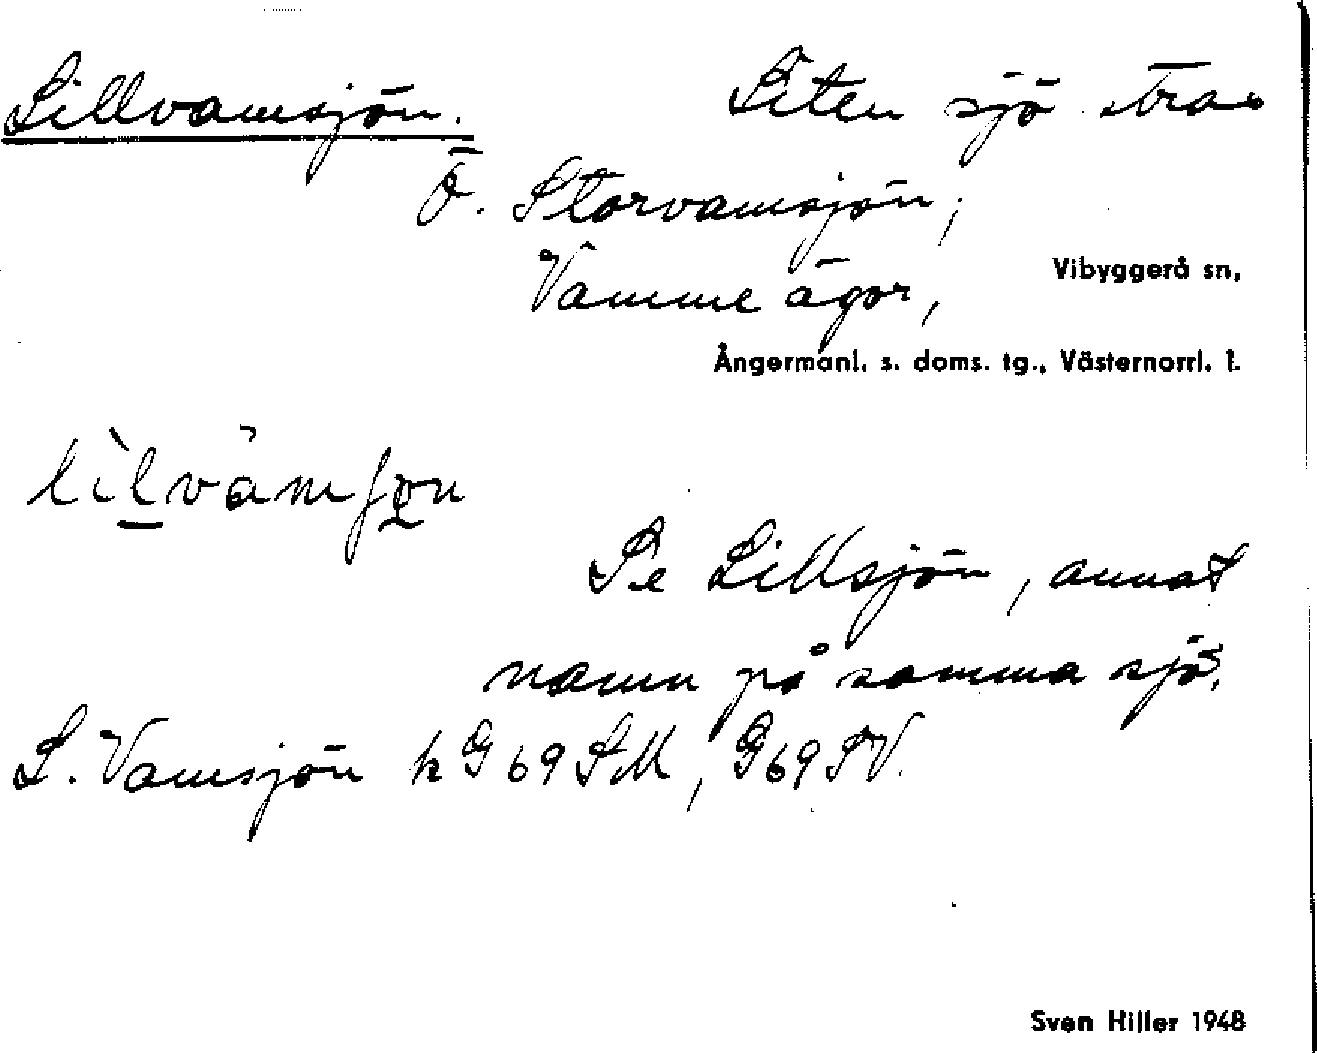 Lillvamsjön. Liten sjö strax
Ö. Storvamsjön,
Vamme ägor, Vibyggerå sn,
Ångermanl. s. doms. tg., Västernorrl. l.
lìlvàmʃǫn
Se Lillsjön, annat
namn på samma sjö.
L. Vamsjön k G 69 SM, G 69 SV.
Sven Hiller 1948